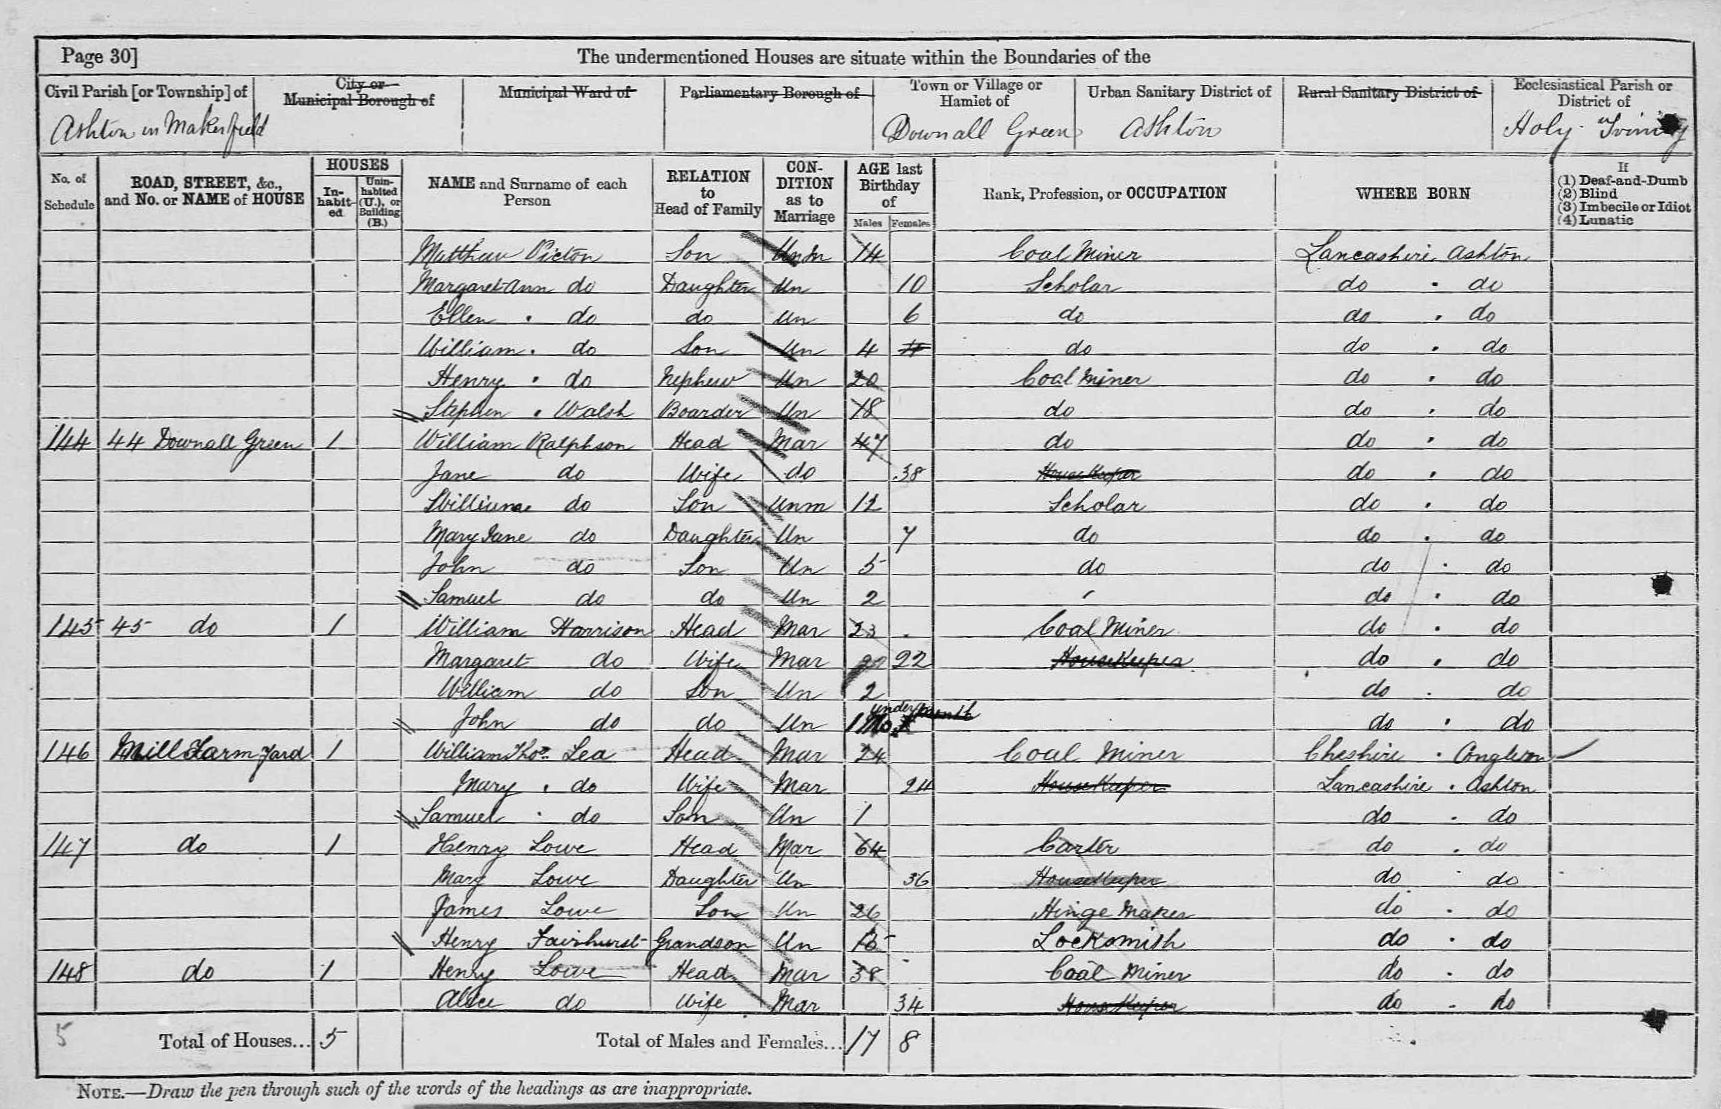 Page 30] The undermentioned Houses are situate within the Boundaries of the
Civil Parish [or Township] of City or Municipal Borough of Municipal Ward of Parliamentary Borough of Town or Village or Hamlet of Urban Sanitary District of Rural Sanitary District of Ecclesiastical Parish or District of
Ashton in Makerfield Downall Green Ashton Holy Trinity
No. of Schedule ROAD, STREET, &c., and No. or NAME of HOUSE HOUSES Inhabited Uninhabited (U.), or Building (B.) NAME and Surname of each Person RELATION to Head of Family CONDITION as to Marriage AGE last Birthday of Males Females Rank, Profession, or OCCUPATION WHERE BORN If (1) Deaf-and-Dumb (2) Blind (3) Imbecile or Idiot (4) Lunatic
Matthew Picton Son Unm 14 Coal Miner Lancashire Ashton
Margaret Ann do Daughter Un 10 Scholar do do
Ellen do do Un 6 do do do
William do Son Un 4 do do do
Henry do Nephew Un 20 Coal Miner do do
Stephen Walsh Boarder Un 18 do do do
144 44 Downall Green 1 William Ralphson Head Mar 47 do do do
Jane do Wife do 38 House Keeper do do
William do Son Unm 12 Scholar do do
Mary Jane do Daughter Un 7 do do do
John do Son Un 5 do do do
Samuel do do Un 2 do do
145 45 do 1 William Harrison Head Mar 23 Coal Miner do do
Margaret do Wife Mar 22 HouseKeeper do do
William do Son Un 2 do do
John do do Un 1 Mo under month do do
146 Mill Farm Yard 1 William Thos Lea Head Mar 24 Coal Miner Cheshire Congleton
Mary do Wife Mar 24 HouseKeeper Lancashire Ashton
Samuel do Son Un 1 do do
147 do 1 Henry Lowe Head Mar 64 Carter do do
Mary Lowe Daughter Un 36 HouseKeeper do do
James Lowe Son Un 26 Hinge Maker do do
Henry Fairhurst Grandson Un 15 Locksmith do do
148 do 1 Henry Lowe Head Mar 38 Coal Miner do do
Alice do Wife Mar 34 House Keeper do do
5 Total of Houses... 5 Total of Males and Females... 17 8
NOTE.—Draw the pen through such of the words of the headings as are inappropriate.